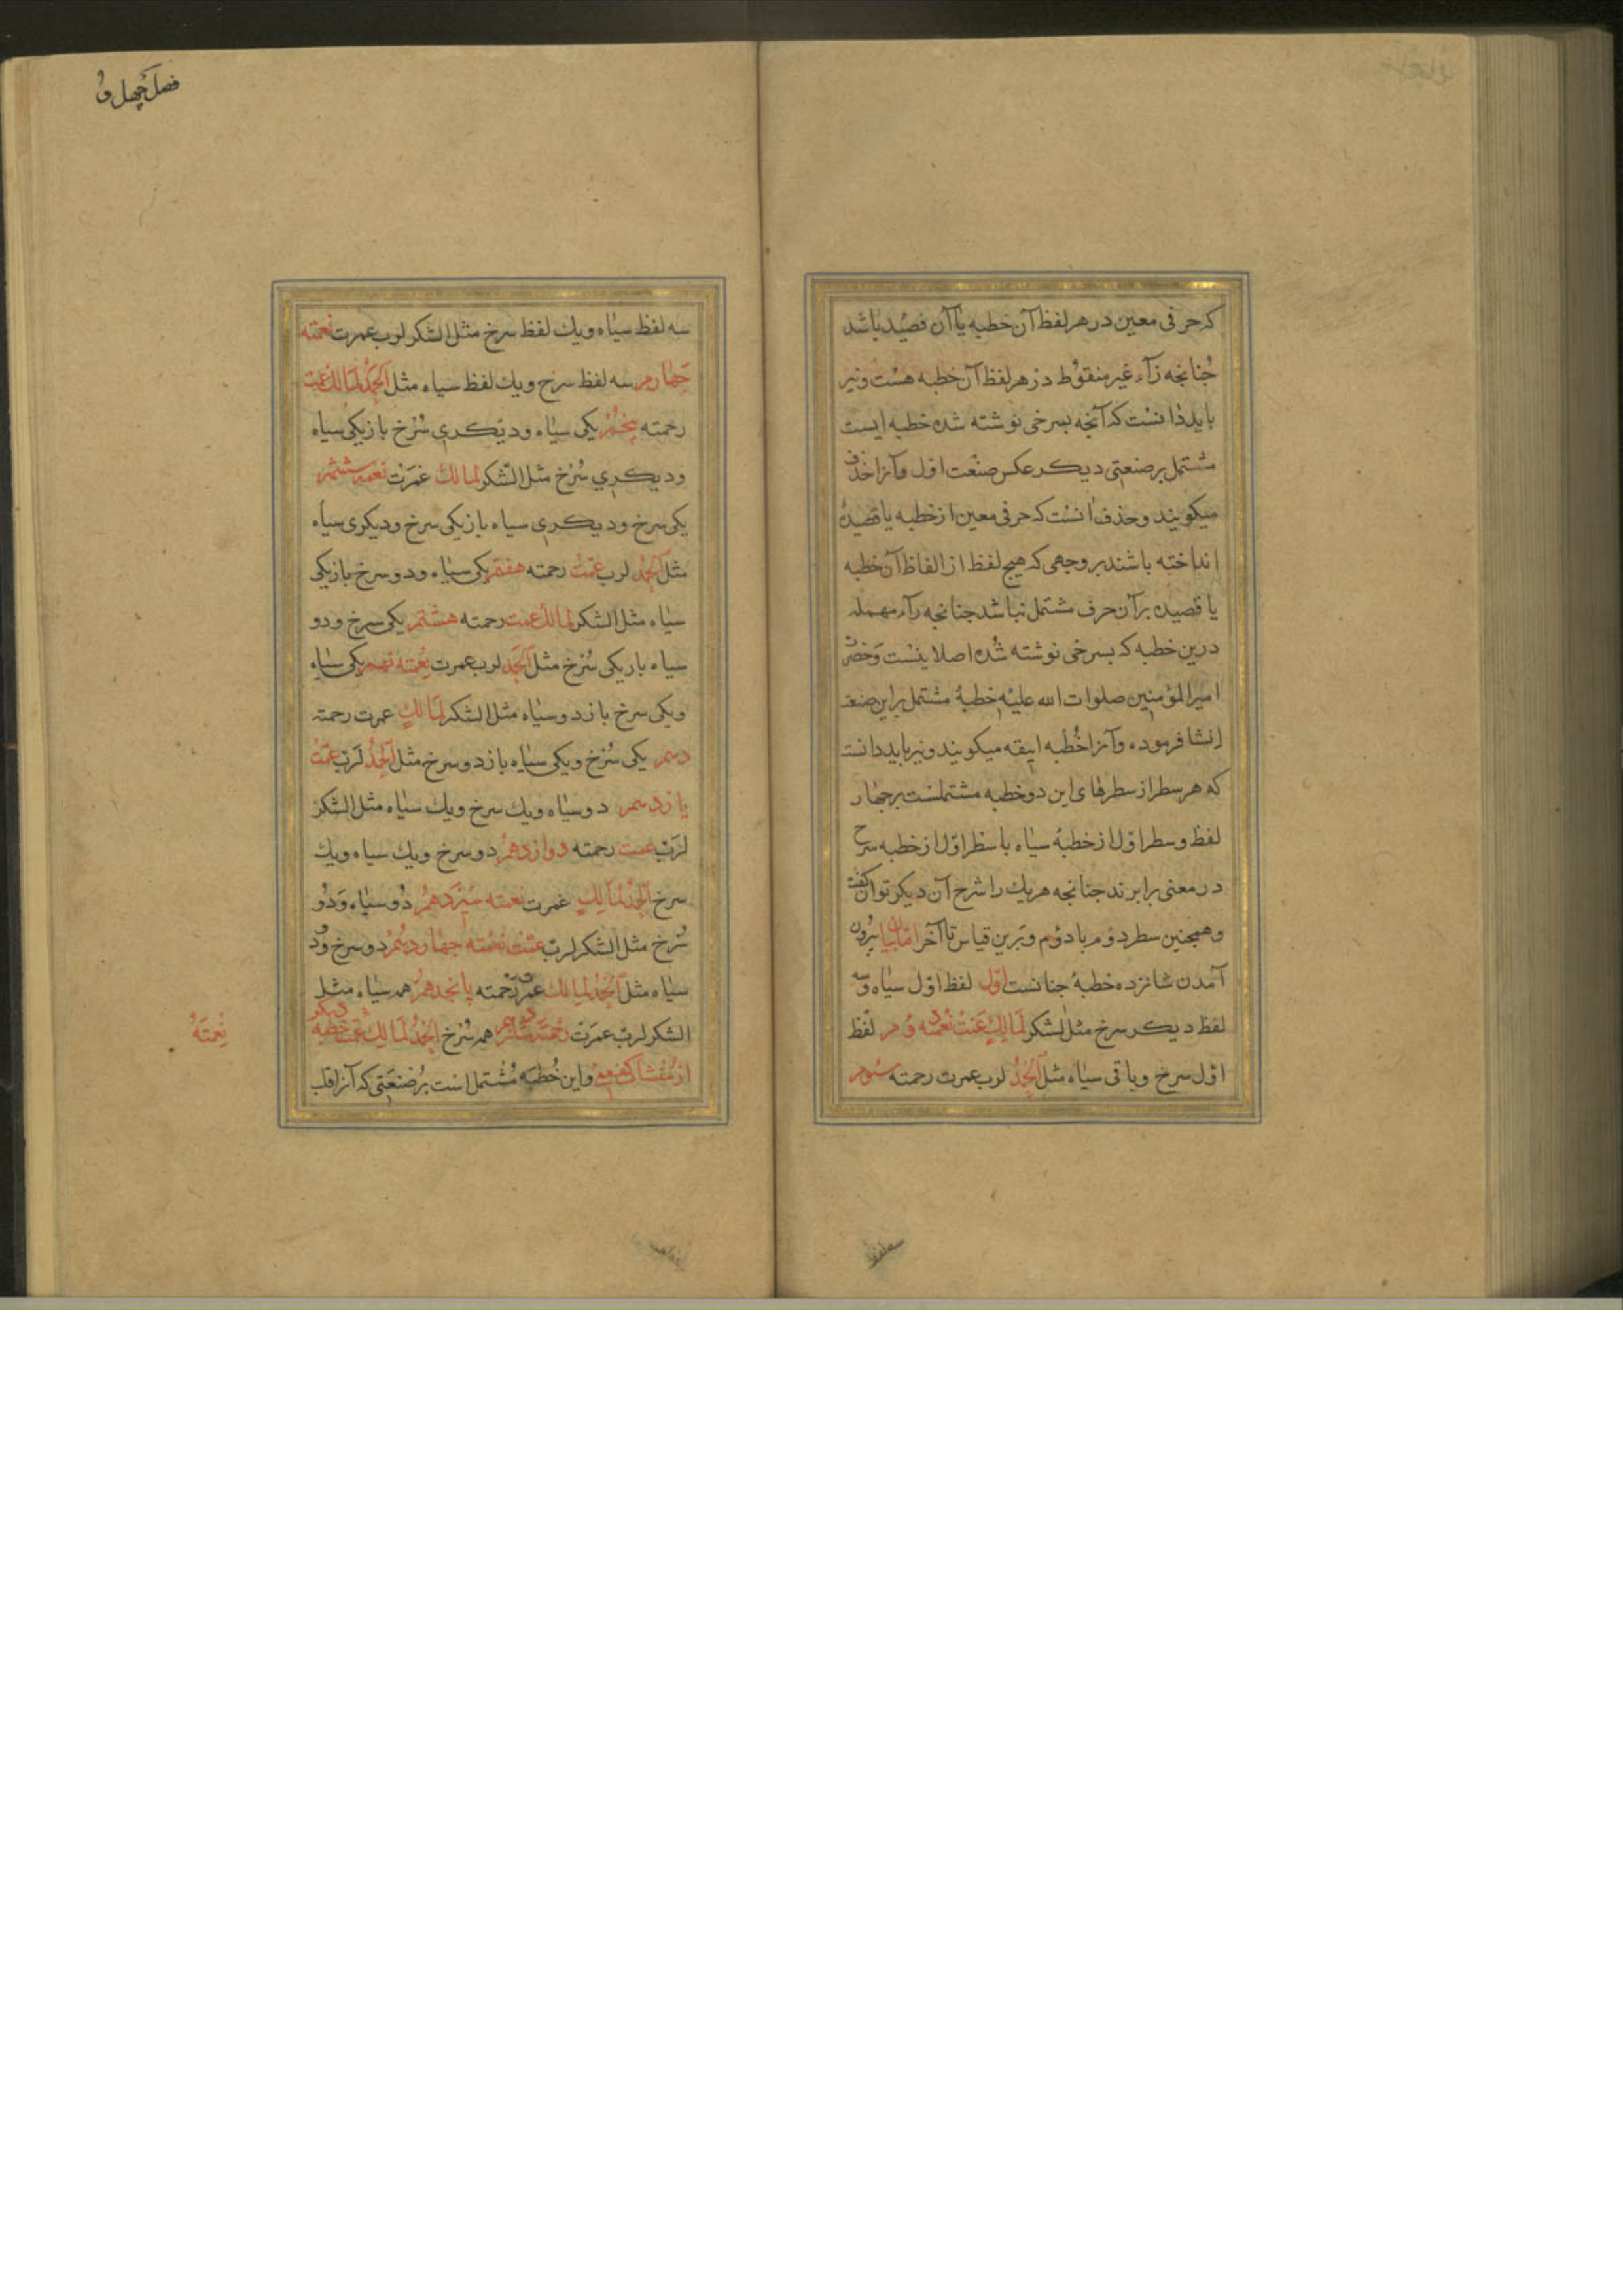 که حرفی معین در هر لفظ آن خطبه یا آن قصیده باشد
جنانجه زآء غیر منقوط در هر لفظ آن خطبه هست و نیز
باید دانست که آنجه بسرخی نوشته شده خطبه ایست
مشتمل بر صنعتی دیکر عکس صنعت اول و آنرا حذف
میکویند و حذف آنست که حرفی معین از خطبه یا قصیدهٔ
انداخته باشند بر وجهی که هیج لفظ از الفاظ آن خطبه
یا قصیده بر آن حرف مشتمل نباشد جنانجه رآء مهمله
درین خطبه که بسرخی نوشته شده اصلا نیست و حضرت
امیر المؤمنین صلوات الله علیه خطبهٔ مشتمل براین صنعة
انشا فرموده و آنرا خطبه انیقه میکویند و نیز باید دانست
که هر سطر از سطرهای این دو خطبه مشتملست برجهار
لفظ و سطر اول از خطبهٔ سیاه با سطر اول از خطبه سرخ
در معنی برابرند جنانجه هریك را شرح آن دیکر توان کفت
و همجنین سطر دوم با دوم و برین قیاس تا آخر اما بیان بیرون
آمدن شانزده خطبهٔ جنانست اول لفظ اول سیاه و سه
لفظ دیکر سرخ مثل الشکر لمالك عمت نعمته دوم لفظ
اول سرخ و باقی سیاه مثل الحمد لرب عمرت رحمته سوم
سه لفظ
فصل چهل و
سه لفظ سیاه و یك لفظ سرخ مثل الشکر لرب عمرت نعمته
جهارم سه لفظ سرخ و یك لفظ سیاه مثل الحمد لمالك عمت
رحمته پنجم یکی سیاه و دیکری سرخ باز یکی سیاه
و دیکری سرخ مثل الشکر لمالك عمرت نعمته ششم
یکی سرخ و دیکری سیاه باز یکی سرخ و دیکری سیاه
مثل الحمد لرب عمت رحمته هفتم یکی سیاه و دو سرخ باز یکی
سیاه مثل الشکر لمالك عمت رحمته هشتم یکی سرخ و دو
سیاه باز یکی سرخ مثل الحمد لرب عمرت نعمته نهم یکی سیاه
و یکی سرخ باز دو سیاه مثل الشکر لمالك عمرت رحمته
دهم یکی سرخ و یکی سیاه باز دو سرخ مثل الحمد لرب عمت
یازدهم دو سیاه و یك سرخ و یك سیاه مثل الشکر
لرب عمت رحمته دوازدهم دو سرخ و یك سیاه و یك
سرخ الحمد لمالك عمرت نعمته سیزدهم دو سیاه و دو
سرخ مثل الشکر لرب عمت نعمته جهاردهم دو سرخ و دو
سیاه مثل الحمد لمالك عمرت رحمته پانجدهم همه سیاه مثل
الشکر لرب عمرت رحمته شانزدهم همه سرخ الحمد لمالك عمت خطبه دیکر
از منشآت کفعمی و این خطبه مشتمل است بر صنعتی که آنرا قلب
نعمته